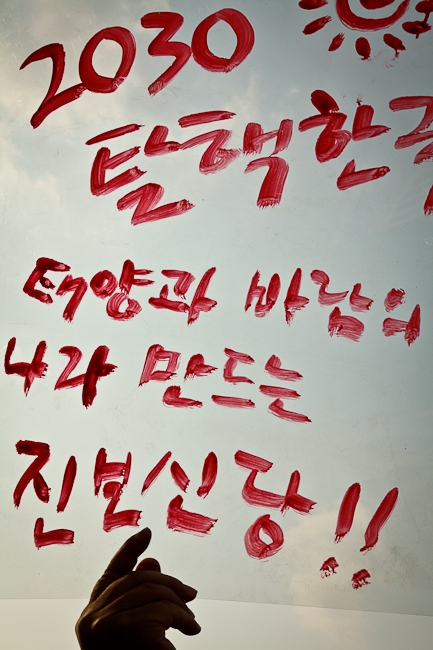 2030
탈핵한국
태양과 바람의
나라 만드는
진보신당!!